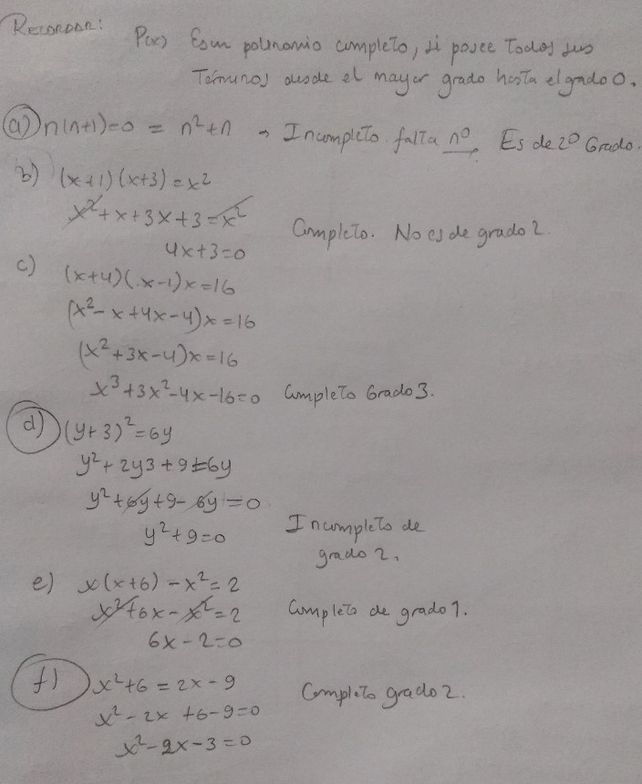 RECORDAR: P(x) Es un polinomio completo, si posee Todos sus
Términos desde el mayor grado hasta el grado 0.
a) n(n+1)=0 = n²+n → Incompleto falta n⁰. Es de 2º Grado.
b) (x+1)(x+3)=x²
x²+x+3x+3=x²
4x+3=0 Completo. No es de grado 2.
c) (x+4)(x-1)x=16
(x²-x+4x-4)x=16
(x²+3x-4)x=16
x³+3x²-4x-16=0 Completo Grado 3.
d) (y+3)²=6y
y²+2y3+9=6y
y²+6y+9-6y=0
y²+9=0 Incompleto de
grado 2.
e) x(x+6)-x²=2
x²+6x-x²=2 Completo de grado 1.
6x-2=0
f) x²+6=2x-9 Completo grado 2.
x²-2x+6-9=0
x²-2x-3=0